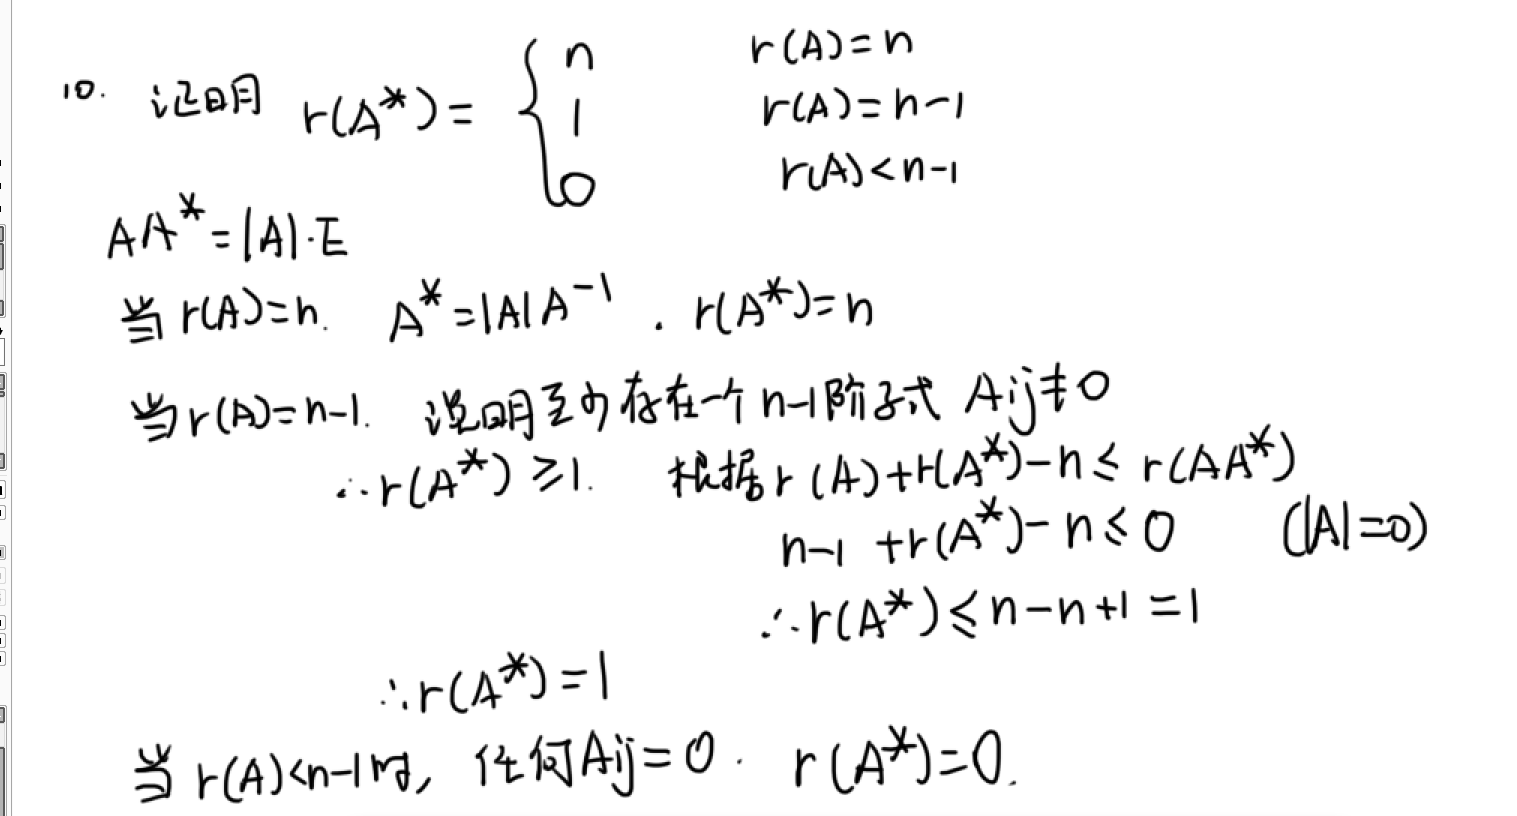 10. 证明 r(A*)= { n r(A)=n
1 r(A)=n-1
0 r(A)<n-1
AA*=|A|·E
当 r(A)=n. A*=|A|A⁻¹. r(A*)=n
当r(A)=n-1. 说明至少存在一个n-1阶子式 Aij≠0
∴r(A*)≥1. 根据r(A)+r(A*)-n≤r(AA*)
n-1+r(A*)-n≤0 (|A|=0)
∴r(A*)≤n-n+1=1
∴r(A*)=1
当 r(A)<n-1时, 任何Aij=0. r(A*)=0.